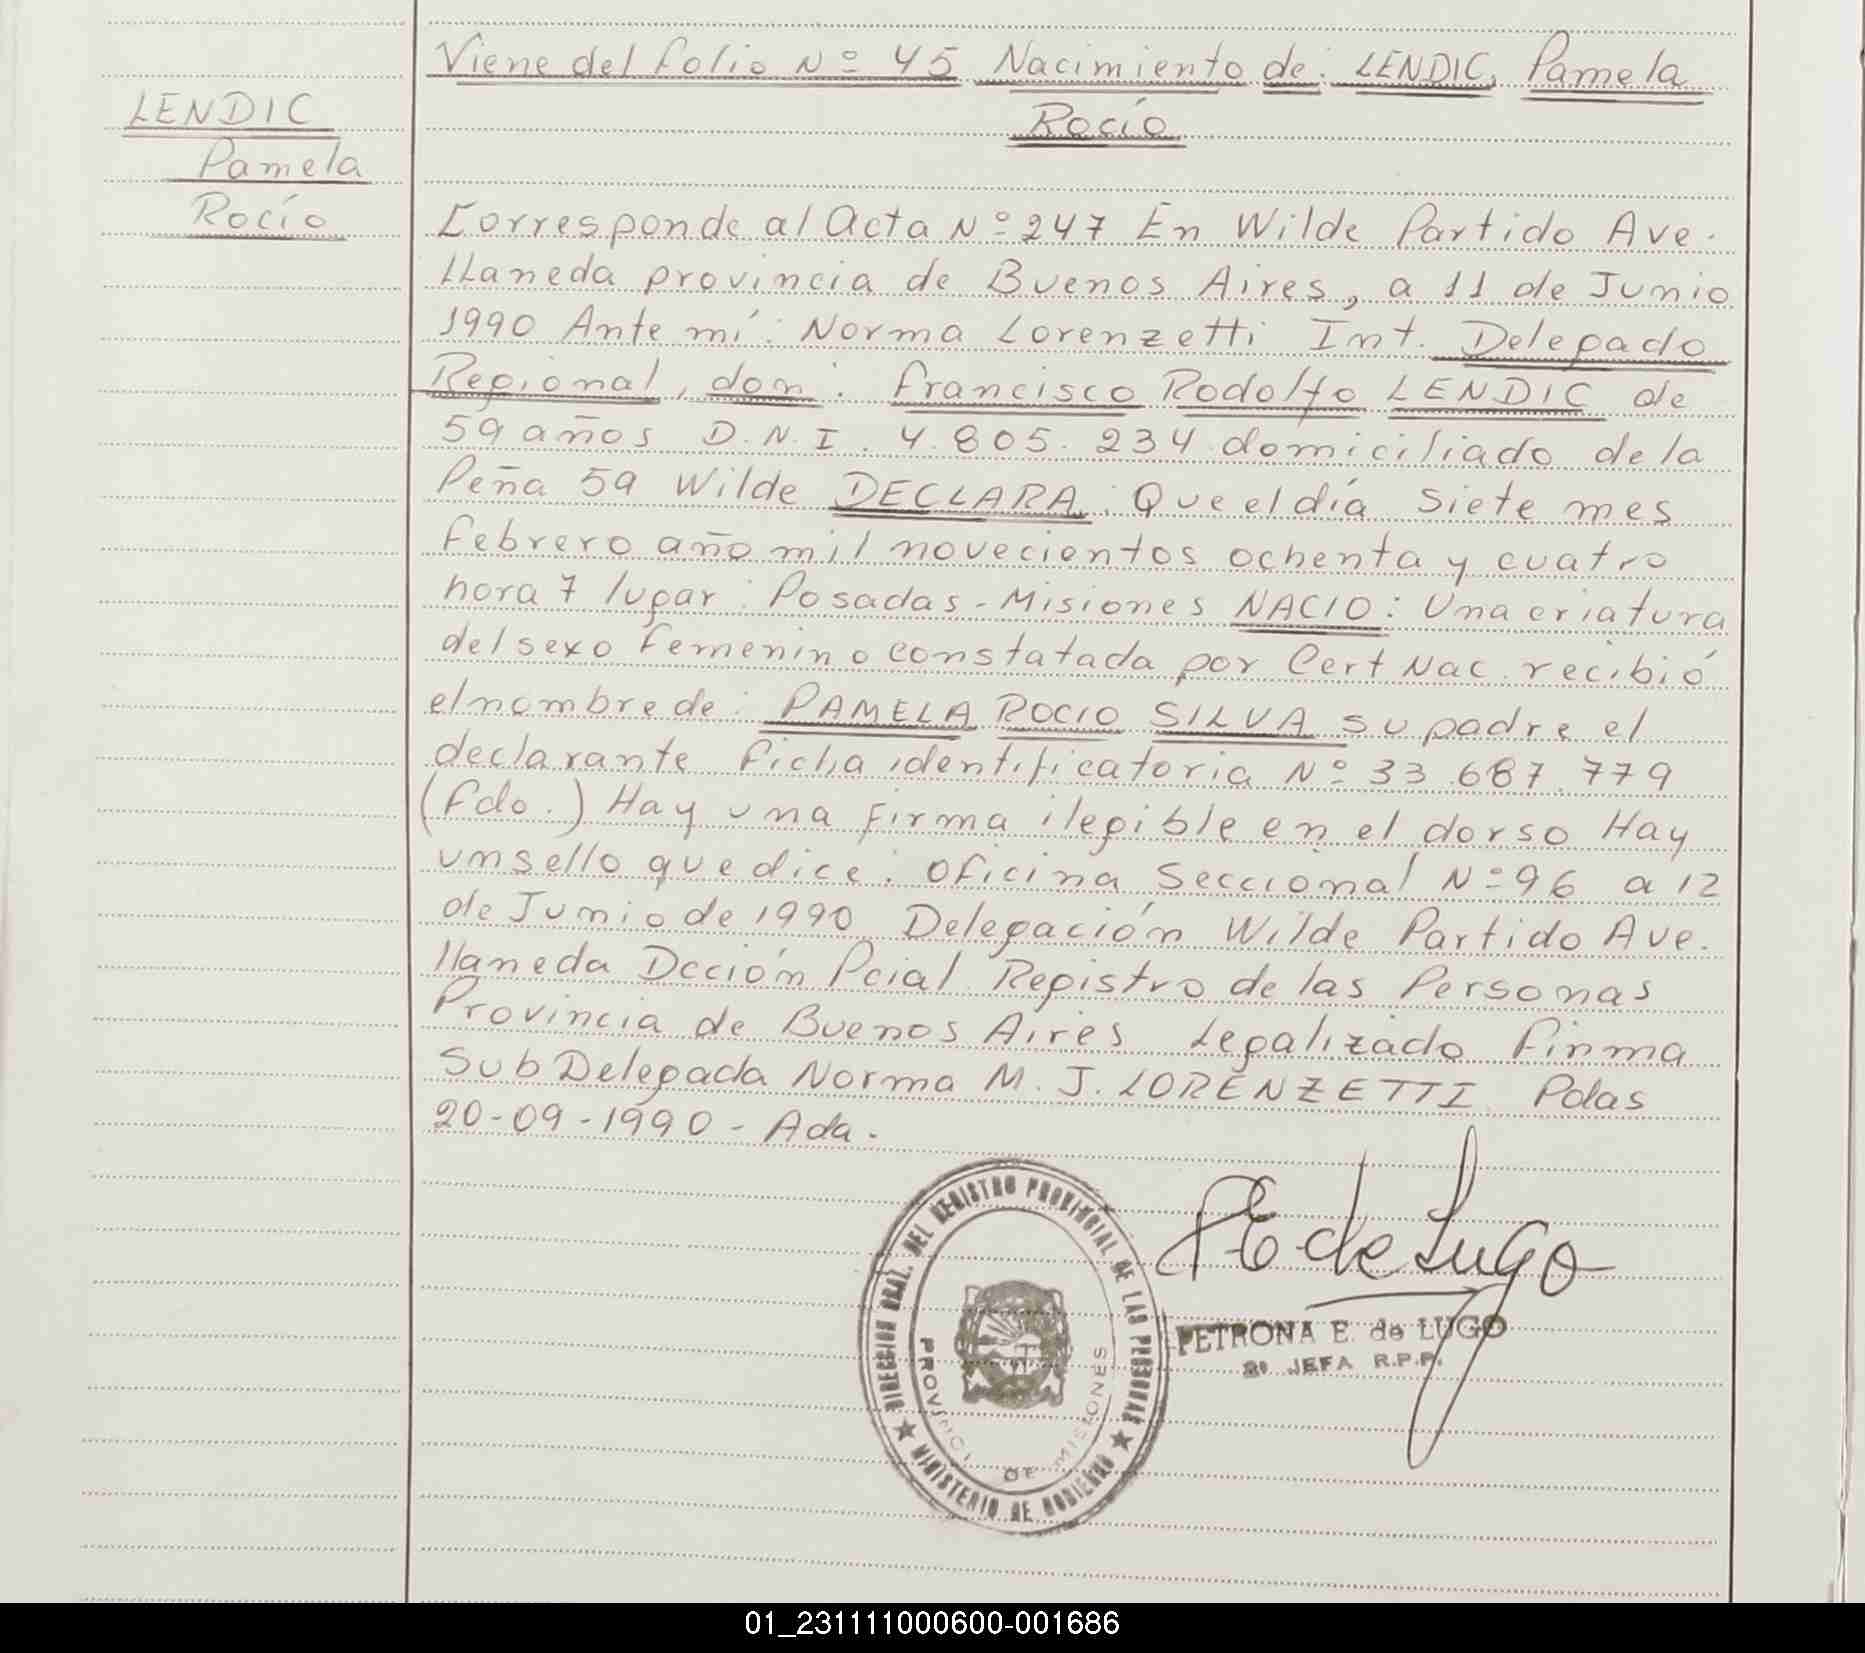 Viene del folio Nº 45 Nacimiento de: LENDIC, Pamela
Rocío
LENDIC
Pamela
Rocío
Corresponde al Acta Nº 247 En Wilde Partido Ave.
llaneda provincia de Buenos Aires, a 11 de Junio
1990 Ante mí: Norma Lorenzetti Int. Delegado
Regional, don: Francisco Rodolfo LENDIC de
59 años D.N.I. 4.805.234 domiciliado de la
Peña 59 Wilde DECLARA: Que el día Siete mes
febrero año mil novecientos ochenta y cuatro
hora 7 lugar: Posadas-Misiones NACIO: Una criatura
del sexo Femenino constatada por Cert Nac. recibió
el nombre de: PAMELA ROCIO SILVA su padre el
declarante ficha identificatoria Nº 33.687.779
(Fdo.) Hay una firma ilegible en el dorso Hay
un sello que dice: Oficina Seccional Nº 96 a 12
de Junio de 1990 Delegación Wilde Partido Ave.
llaneda Dcción Pcial Registro de las Personas
Provincia de Buenos Aires Legalizado Firma
Sub Delegada Norma M. J. LORENZETTI. Pdas
20-09-1990 - Ada.
DIRECCION GRAL. DEL REGISTRO PROVINCIAL DE LAS PERSONAS
PROVINCIA DE MISIONES
★ MINISTERIO DE GOBIERNO ★
PE de Lugo
PETRONA E. de LUGO
JEFA R.P.P.
01_231111000600-001686